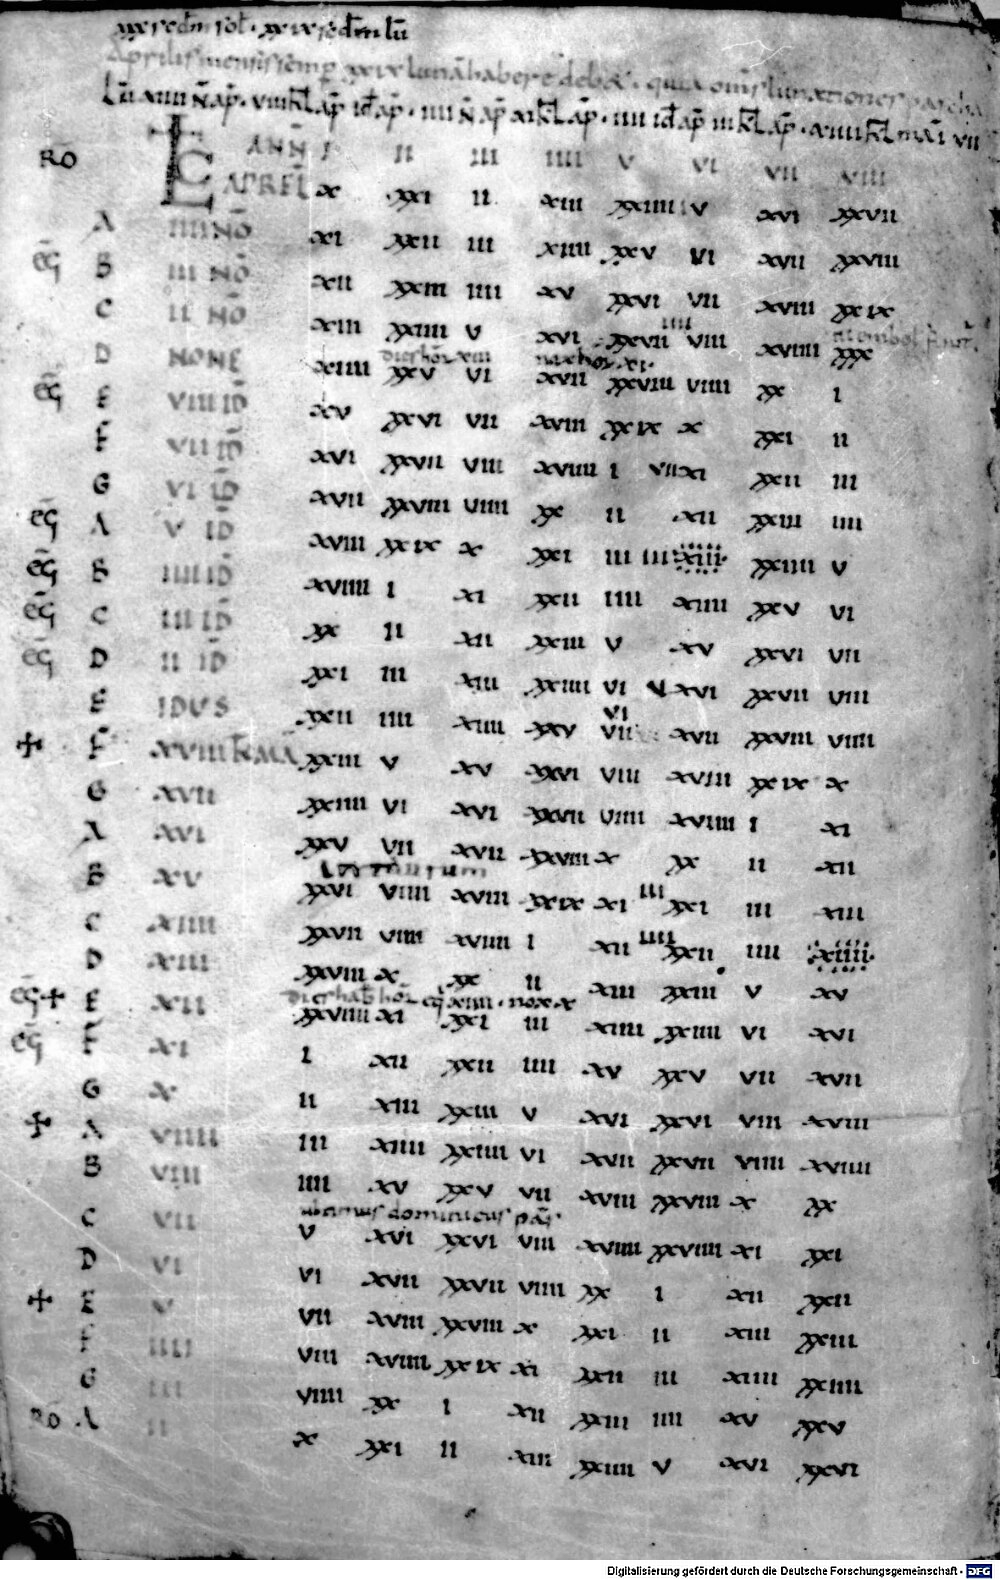 xxx red̄m sol · xxix sed̄m lū
Aprilis mensis semp xxix lunā habere debet · quia om̄s lunationes pascha
Lū xiiii N̄ ap̄ · viii kl ap̄ id ap̄ · iiii N̄ ap̄ xi kl ap̄ · iiii id ap̄ iii kl ap̄ · xiiii kl mai vii
RŌ KL ANN̄ I II III IIII V VI VII VIII
APREL X XXI II XIII XXIIII V XVI XXVII
A IIII NŌ XI XXII III XIIII XXV VI XVII XXVIII
eḡ B III NŌ XII XXIII IIII XV XXVI VII XVIII XXIX
C II NŌ XIII XXIIII V XVI XXVII IIII VIII XVIIII XXX
D NONE XIIII XXV VI XVII XXVIII VIIII XX I
eḡ E VIII ID̄ XV XXVI VII XVIII XXIX X XXI II
F VII ID̄ XVI XXVII VIII XVIIII I VII XI XXII III
G VI ID̄ XVII XXVIII VIIII XX II XII XXIII IIII
eḡ A V ID̄ XVIII XXIX X XXI III III XIII XXIIII V
eḡ B IIII ID̄ XVIIII I XI XXII IIII XIIII XXV VI
eḡ C III ID̄ XX II XII XXIII V XV XXVI VII
eḡ D II ID̄ XXI III XIII XXIIII VI V XVI XXVII VIII
E IDUS XXII IIII XIIII XXV VI VII XVII XXVIII VIIII
+ F XVIII K̄L MAI XXIII V XV XXVI VIII XVIII XXIX X
G XVII XXIIII VI XVI XXVII VIIII XVIIII I XI
A XVI XXV VII XVII XXVIII X XX II XII
B XV XXVI VIII XVIII XXIX XI III XXI III XIII
C XIIII XXVII VIIII XVIIII I XII IIII XXII IIII XIIII
D XIII XXVIII X XX II XIII XXIII V XV
dies hab̄ hor̄ eq̄ xiiii · nox x
eḡ + E XII XXVIIII XI XXI III XIIII XXIIII VI XVI
eḡ F XI I XII XXII IIII XV XXV VII XVII
G X II XIII XXIII V XVI XXVI VIII XVIII
+ A VIIII III XIIII XXIIII VI XVII XXVII VIIII XVIIII
B VIII IIII XV XXV VII XVIII XXVIII X XX
ultimus dominicus pas̄
C VII V XVI XXVI VIII XVIIII XXVIIII XI XXI
D VI VI XVII XXVII VIIII XX I XII XXII
+ E V VII XVIII XXVIII X XXI II XIII XXIII
F IIII VIII XVIIII XXIX XI XXII III XIIII XXIIII
G III VIIII XX I XII XXIII IIII XV XXV
RŌ A II X XXI II XIII XXIIII V XVI XXVI
Digitalisierung gefördert durch die Deutsche Forschungsgemeinschaft - DFG